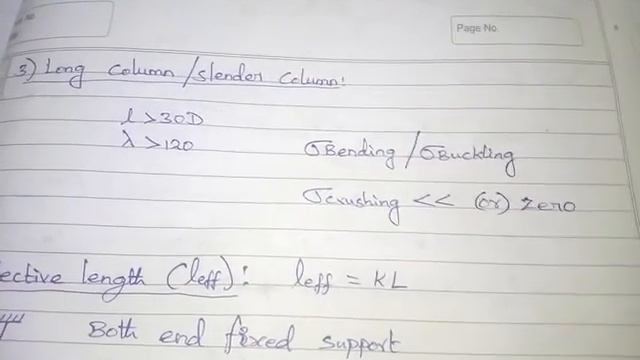 Page No.
3) Long column/slender column:
l > 30D
λ > 120
σBending/σBuckling
σcrushing << (or) zero
ective length (leff): leff = KL
Both end fixed support